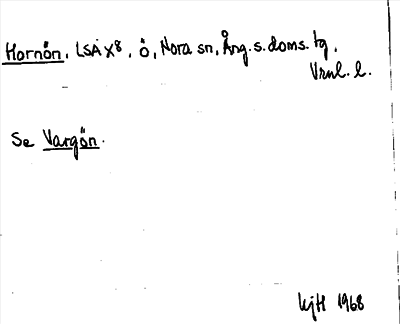 Hornön, LSÅ X8, ö, Nora sn, Ång. s. doms. tg,
Vrnl. l.
Se Vargön.
KjH 1968